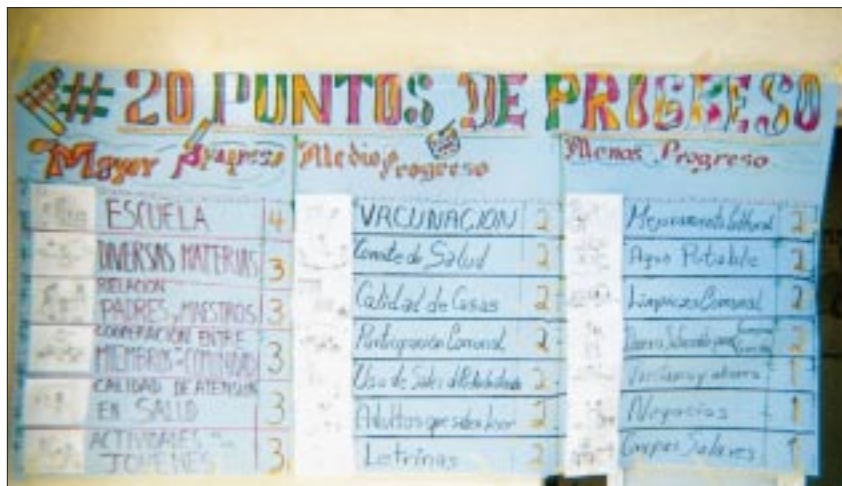 # 20 PUNTOS DE PROGRESO
Mayor Progreso
ESCUELA 4
DIVERSAS MATERIAS 3
RELACION
PADRES Y MAESTROS 3
COOPERACIÓN ENTRE
MIEMBROS COMUNIDAD 3
CALIDAD DE ATENCION
EN SALUD 3
ACTIVIDADES
JOVENES 3
Medio Progreso
VACUNACION 2
Comite de Salud 2
Calidad de Casas 2
Participación Comunal 2
Uso de Sales 2
Adultos que saben leer 2
Letrinas 2
Menos Progreso
Mejoramiento 2
Agua Potable 2
Limpieza Comunal 2
1
Negocios 1
Solares 1